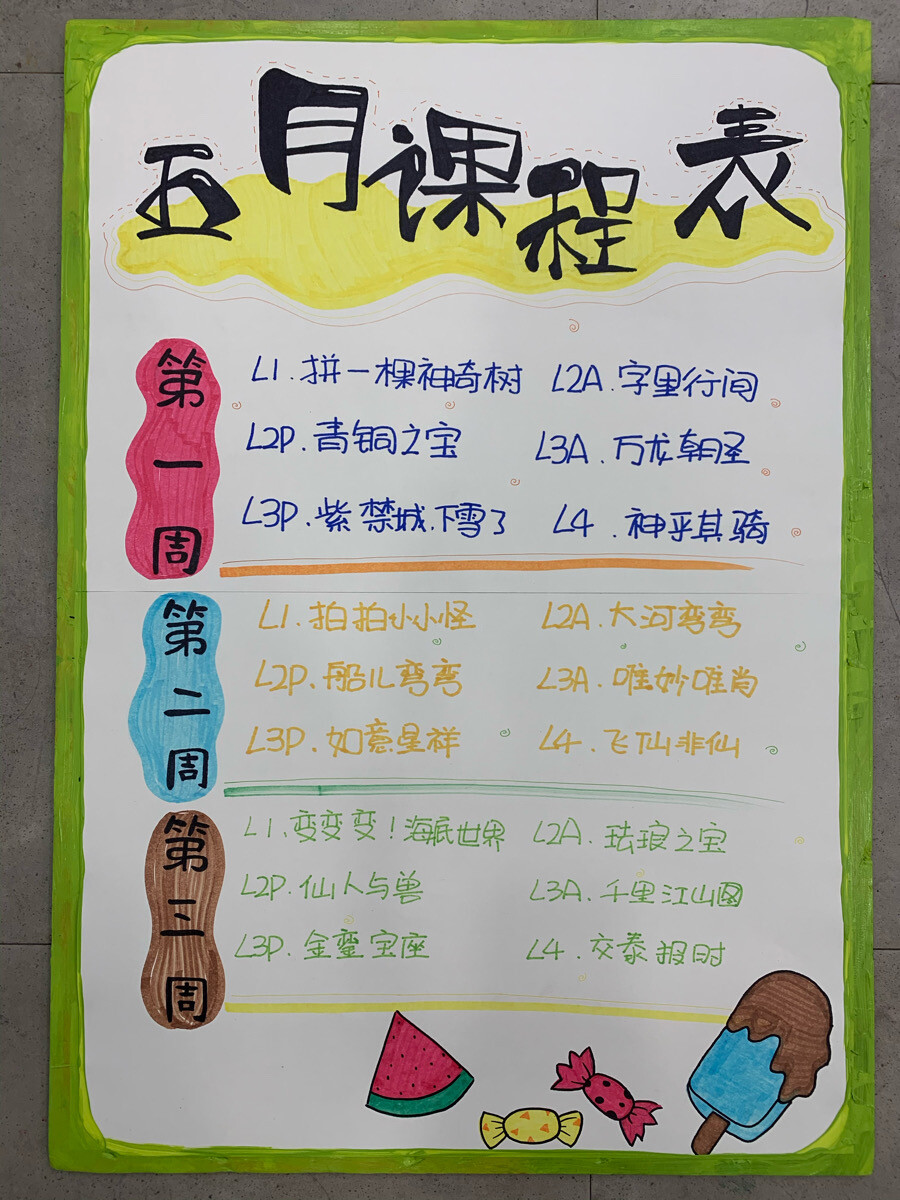 五月课程表
第一周
L1.拼一棵神奇树 L2A.字里行间
L2P.青铜之宝 L3A.万龙朝圣
L3P.紫禁城.下雪了 L4.神乎其骑
第二周
L1.拍拍小小怪 L2A.大河弯弯
L2P.船儿弯弯 L3A.唯妙唯肖
L3P.如意呈祥 L4.飞仙非仙
第三周
L1.变变变！海底世界 L2A.珐琅之宝
L2P.仙人与兽 L3A.千里江山图
L3P.金銮宝座 L4.交泰报时